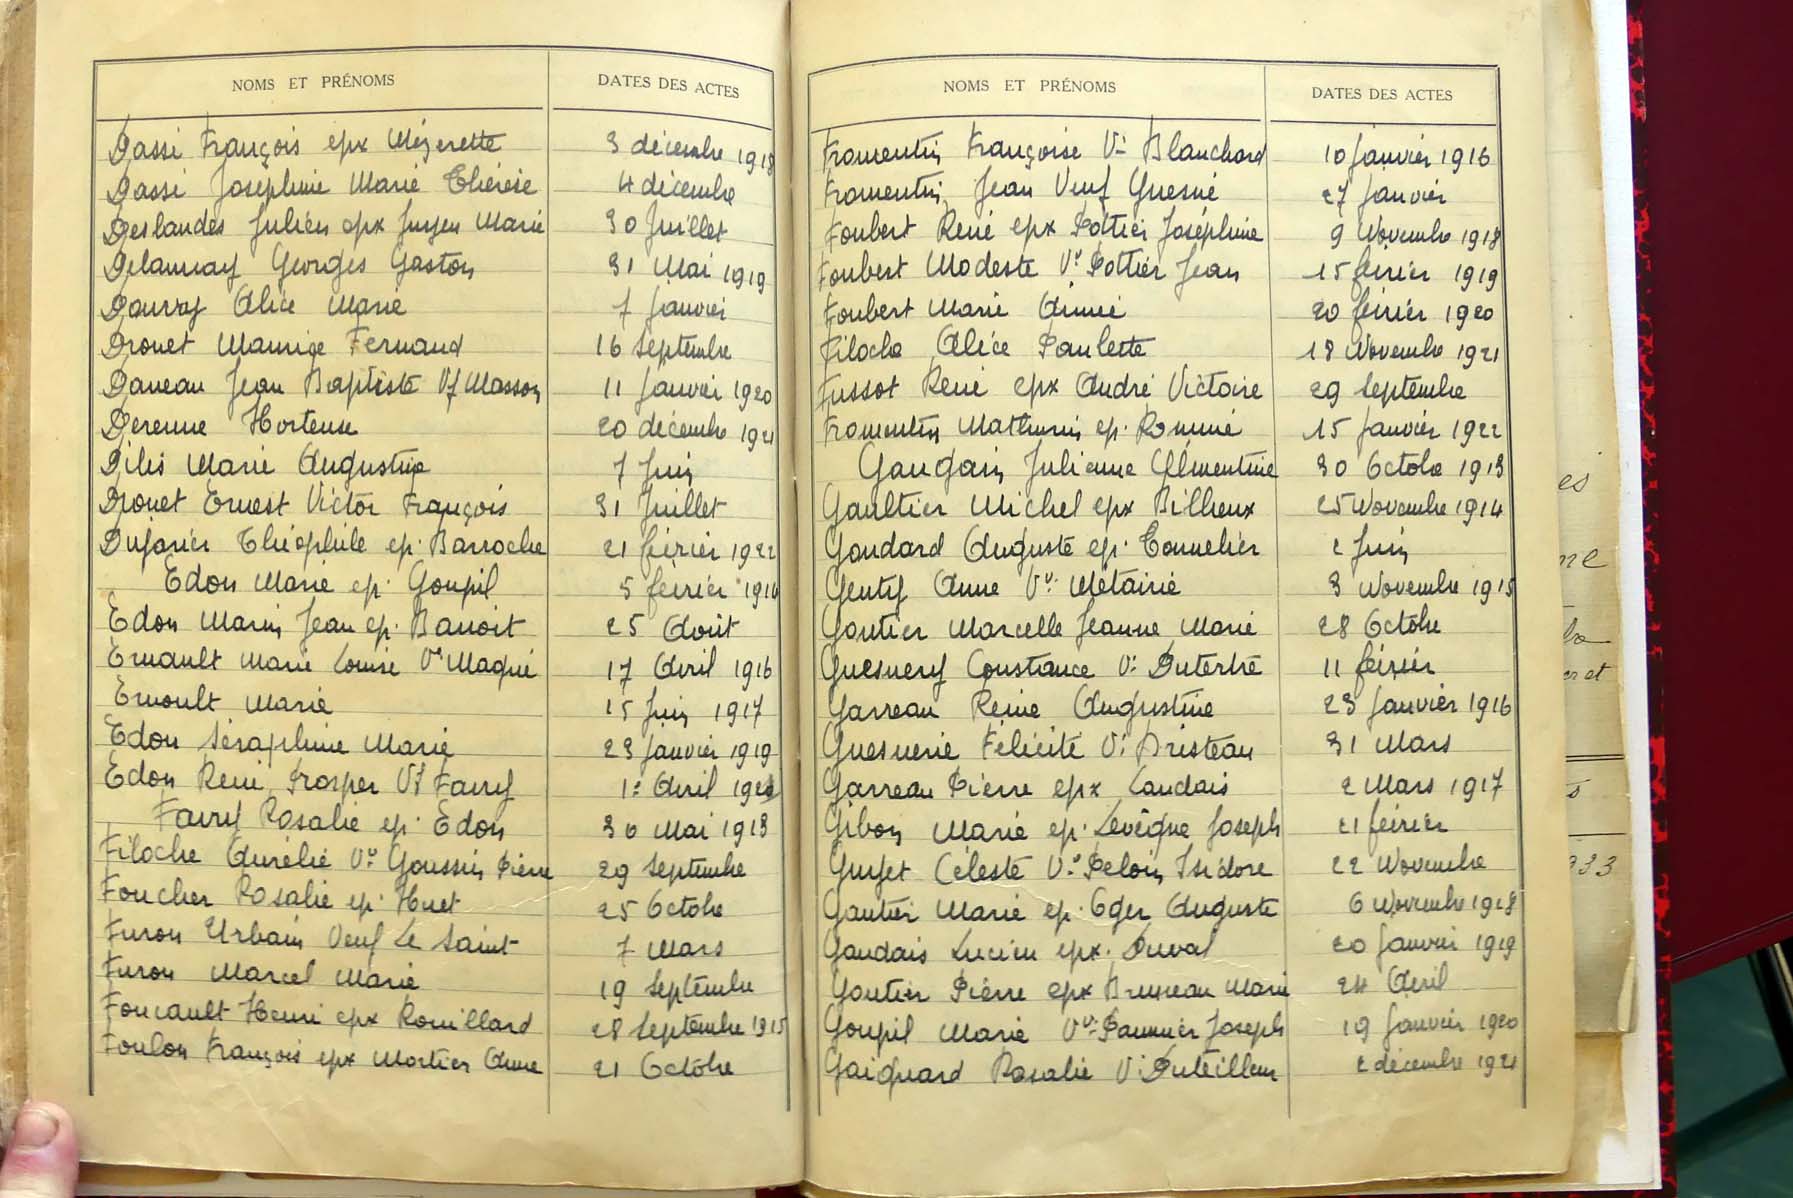 NOMS ET PRÉNOMS DATES DES ACTES
Dassi François epx Mézerette 3 décembre 1918
Dassi Josephine Marie Thérèse 4 décembre
Deslandes Julien epx Marie 30 Juillet
Delaunay Georges Gaston 31 Mai 1919
Dauray Alice Marie 7 Janvier
Drouet Maurice Fernand 16 Septembre
Daneau Jean Baptiste Vf Masson 11 Janvier 1920
Derenne Hortense 20 décembre 1921
Dilis Marie Augustine 7 Juin
Drouet Ernest Victor François 31 Juillet
Dujarier Théophile ep. Barroche 21 février 1922
Edon Marie ep. Goupil 5 février
Edon Marin Jean ep. Banoist 25 Août
Ernault Marie Louise Ve Maqué 17 Avril 1916
Ernoult Marie 15 Juin 1917
Edon Séraphine Marie 23 Janvier 1919
Edon René Prosper Vf Favry 1er Avril
Favry Rosalie ep. Edon 30 Mai 1913
Filoche Aurélie Ve Goussin Pierre 29 Septembre
Foucher Rosalie ep. Huet 25 Octobre
Furon Urbain Veuf Le Saint 7 Mars
Furon Marcel Marie 19 Septembre
Foucault Henri epx Rouillard 28 Septembre 1915
Foulon François epx Mortier Anne 21 Octobre
NOMS ET PRÉNOMS DATES DES ACTES
Fromentin Françoise Ve Blanchard 10 Janvier 1916
Fromentin Jean Veuf Guesné 27 Janvier
Foubert René epx Pottier Joséphine 9 Novembre 1918
Foubert Modeste Ve Pottier Jean 15 février 1919
Foubert Marie Aimée 20 février 1920
Filoche Alice Paulette 18 Novembre 1921
Fussot René epx André Victoire 29 Septembre
Fromentin Mathurin ep. Rommé 15 Janvier 1922
Gaugain Julienne Clémentine 30 Octobre 1913
Gaultier Michel epx Bilheux 25 Novembre 1914
Goudard Auguste ep. Tonnelier 2 Juin
Gentif Anne Ve Métairie 3 Novembre 1915
Gautier Marcelle Jeanne Marie 28 Octobre
Guesnery Constance Ve Dutertre 11 février
Garreau Reine Augustine 23 Janvier 1916
Guesnerie Félicité Ve Bristeau 31 Mars
Garreau Pierre epx Landais 2 Mars 1917
Gibon Marie ep. Levêque Joseph 21 février
Guyet Céleste Ve Peloin Isidore 22 Novembre
Gautier Marie ep. Oger Auguste 6 Novembre 1918
Gaudais Lucien epx. Duval 20 Janvier 1919
Goutier Pierre epx Bruneau Marie 24 Avril
Goupil Marie Ve Paumier Joseph 19 Janvier 1920
Gaignard Rosalie Ve Duteilleur 2 décembre 1921
es
ne
et
33